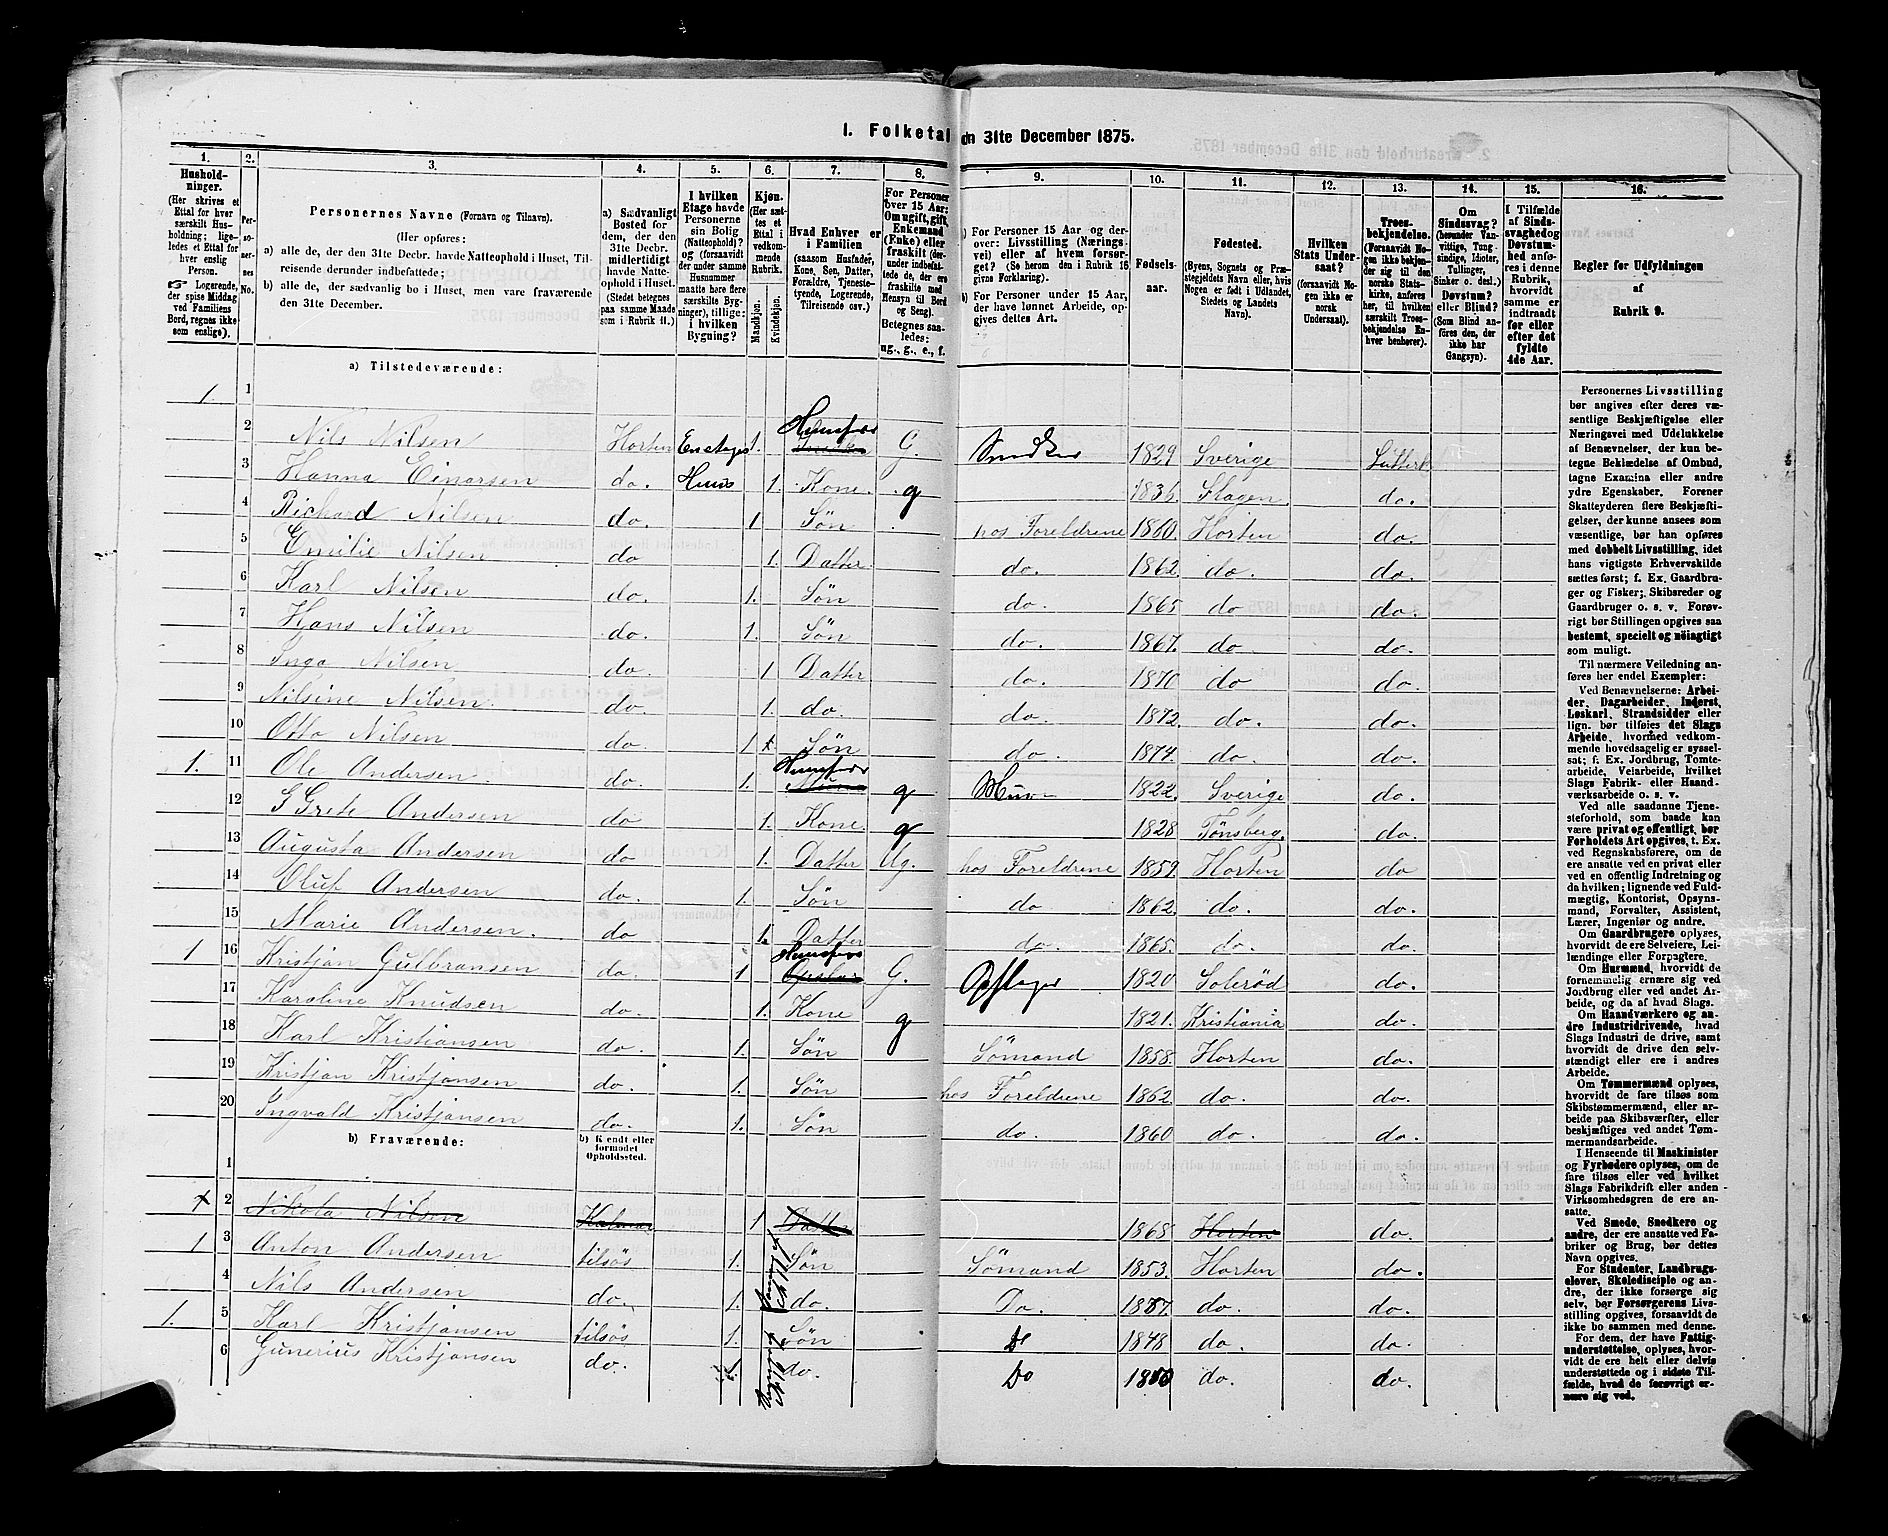 1. Folketal den 31te December 1875.
1. 2. 3. 4. 5. 6. 7. 8. 9. 10. 11. 12. 13. 14. 15. 16.
Husholdninger.
(Her skrives et
Ettal for hver
særskilt Husholdning; ligeledes
et Ettal for
hver enslig
Person.
☞ Logerende,
der spise Middag
ved Familiens
Bord, regnes ikke
som enslige).
Personernes No.
Personernes Navne (Fornavn og Tilnavn).
(Her opføres:
a) alle de, der den 31te Decbr. havde Natteophold i Huset, Tilreisende derunder indbefattede;
b) alle de, der sædvanlig bo i Huset, men vare fraværende
den 31te December.
a) Sædvanligt
Bosted for
dem, der den
31te Decbr.
midlertidigt
havde Natteophold i Huset.
(Stedet betegnes
paa samme Maade
som i Rubrik 11.)
I hvilken
Etage havde
Personerne
sin Bolig
(Natteophold)?
(forsaavidt
der under samme
Husnummer
maatte høre flere
særskilte Bygninger), tillige:
i hvilken
Bygning?
Kjøn.
(Her sættes et
Ettal i
vedkommende
Rubrik.
Mandkjøn.
Kvindekjøn.
Hvad Enhver er
i Familien
(saasom Husfader,
Kone, Søn, Datter,
Forældre, Tjenestetyende, Logerende,
Tilreisende osv.)
For Personer
over 15 Aar:
Om ugift, gift,
Enkemand
(Enke) eller
fraskilt (derunder indbefattede de, der ere
fraskilte med
Hensyn til Bord
og Seng).
Betegnes saaledes:
ug., g., e., f.
a) For Personer 15 Aar og derover: Livsstilling (Næringsvei) eller af hvem forsørget? (Se herom den i Rubrik 16
givne Forklaring).
b) For Personer under 15 Aar,
der have lønnet Arbeide, opgives dettes Art.
Fødselsaar.
Fødested.
(Byens, Sognets og Præstegjeldets Navn, eller, hvis
Nogen er født i Udlandet,
Stedets og Landets
Navn).
Hvilken
Stats Undersaat?
(forsaavidt Nogen ikke er
norsk
Undersaat).
Troesbekjendelse.
(Forsaavidt Nogen ikke bekjender sig til den
norske Statskirke, anføres
her, til hvilken
særskilt Troesbekjendelse Enhver henhører).
Om
Sindssvag?
(herunder Vanvittige, Tungsindige, Idioter,
Tullinger,
Sinker o. desl.)
Døvstum?
eller Blind?
(Som Blind anføres den, der
ikke har
Gangsyn).
I Tilfælde
af Sindssvaghed og
Døvstumhed anføres
i denne
Rubrik,
hvorvidt
samme er
indtraadt
før eller
efter det
fyldte
4de Aar.
Regler for Udfyldningen
af
Rubrik 9.
a) Tilstedeværende:
1. 1
2 Nils Nilsen Horten Enetages 1. Husfar G. Snedker 1829 Sverige Lutterk
3 Hanna Einarsen do. Huus 1. Kone g 1836. Slagen do.
4 Richard Nilsen do. 1 Søn hos Foreldrene 1860. Horten do.
5 Emilie Nilsen do 1. Datter do. 1862. do. do.
6 Karl Nilsen do. 1. Søn do. 1865 do do.
7 Hans Nilsen do. 1. Søn do. 1867. do. do.
8 Inga Nilsen do. 1 Datter do. 1870 do do.
9 Nilsine Nilsen do. 1. do. do. 1872. do. do.
10 Otto Nilsen do. 1 Søn do. 1874. do. do.
1. 11 Ole Andersen do. 1. Husfar g Mur 1822. Sverige do.
12 S Grete Andersen do 1. Kone. g 1828 Tønsberg. do.
13 Augusta Andersen do 1. Datter Ug. hos Foreldrene 1859. Horten do
14 Oluf Andersen do. 1. Søn do 1862. do. do.
15 Marie Andersen. do 1. Datter do. 1865. do. do.
1 16 Kristjan Gulbransen do. 1 Husfar G. Opslager 1820 Solerød do.
17 Karoline Knudsen do. 1. Kone g 1821. Kristiania do.
18 Karl Kristiansen do. 1. Søn Sømand 1858. Horten do.
19 Kristjan Kristjansen do. 1. Søn hos Foreldrene 1862. do. do.
20 Ingvald Kristjansen do. 1. Søn do. 1860 do. do.
b) Fraværende:
b) Kjendt eller
formodet
Opholdssted.
1
x 2 Nikola Nilsen Kalmar 1 Datter 1868. Horten do.
1 3 Anton Andersen tilsøs 1. Søn Sømand 1853. Horten do.
4 Nils Andersen do. 1. do. Do. 1857. do. do.
1. 5 Karl Kristjansen tilsøs 1. Søn Do 1848 do. do.
6 Gunerius Kristjansen do. 1. do. Do 1850 do. do.
Personernes Livsstilling
bør angives efter deres væsentlige Beskjæftigelse eller
Næringsvei med Udelukkelse
af Benævnelser, der kun betegne Beklædelse af Ombud,
tagne Examina eller andre
ydre Egenskaber. Forener
Skatteyderen flere Beskjæftigelser, der kunne ansees som
væsentlige, bør han opføres
med dobbelt Livsstilling, idet
hans vigtigste Erhvervskilde
sættes først; f. Ex. Gaardbruger og Fisker; Skibsreder og
Gaardbruger o. s. v. Forøvrigt bør Stillingen opgives saa
bestemt, specielt og nøiagtigt
som muligt.
Til nærmere Veiledning anføres her endel Exempler:
Ved Benævnelserne: Arbeider, Dagarbeider, Inderst,
Løskarl, Strandsidder eller
lign. bør tilføies det Slags
Arbeide, hvormed vedkommende hovedsagelig er sysselsat; f. Ex. Jordbrug, Tomtearbeide, Veiarbeide, hvilket
Slags Fabrik- eller Haandværksarbeide o. s. v.
Ved alle saadanne Tjenesteforhold, som baade kan
være privat og offentligt, bør
Forholdets Art opgives, t. Ex.
ved Regnskabsførere, om de
ere ansatte ved en privat eller
ved en offentlig Indretning og
da hvilken; lignende ved Fuldmægtig, Kontorist, Opsynsmand, Forvalter, Assistent,
Lærer, Ingeniør og andre.
Om Gaardbrugere oplyses,
hvorvidt de ere Selveiere, Leilændinge eller Forpagtere.
Om Husmænd, hvorvidt de
fornemmelig ernære sig ved
Jordbrug eller ved andet Arbeide, og da af hvad Slags.
Om Haandværkere og andre Industridrivende, hvad
Slags Industri de drive, samt
hvorvidt de drive den selvstændigt eller ere i andres
Arbeide.
Om Tømmermænd oplyses,
hvorvidt de fare tilsøs som
Skibstømmermænd, eller arbeide paa Skibsværfter, eller
beskjæftiges ved andet Tømmermandsarbeide.
I Henseende til Maskinister
og Fyrbødere oplyses, om de
fare tilsøs eller ved hvilket
Slags Fabrikdrift eller anden
Virksomhedsgren de ere ansatte.
Ved Smede, Snedkere og
andre, der ere ansatte ved Fabriker og Brug, bør dettes
Navn opgives.
For Studenter, Landbrugselever, Skoledisciple og andre, der ikke forsørge sig
selv, bør Forsørgerens Livsstilling opgives, forsaavidt de
ikke bo sammen med denne.
For dem, der have Fattigunderstøttelse, oplyses, hvorvidt de ere helt eller delvis
understøttede og i sidste Tilfælde, hvad de forøvrigt ernære sig ved.